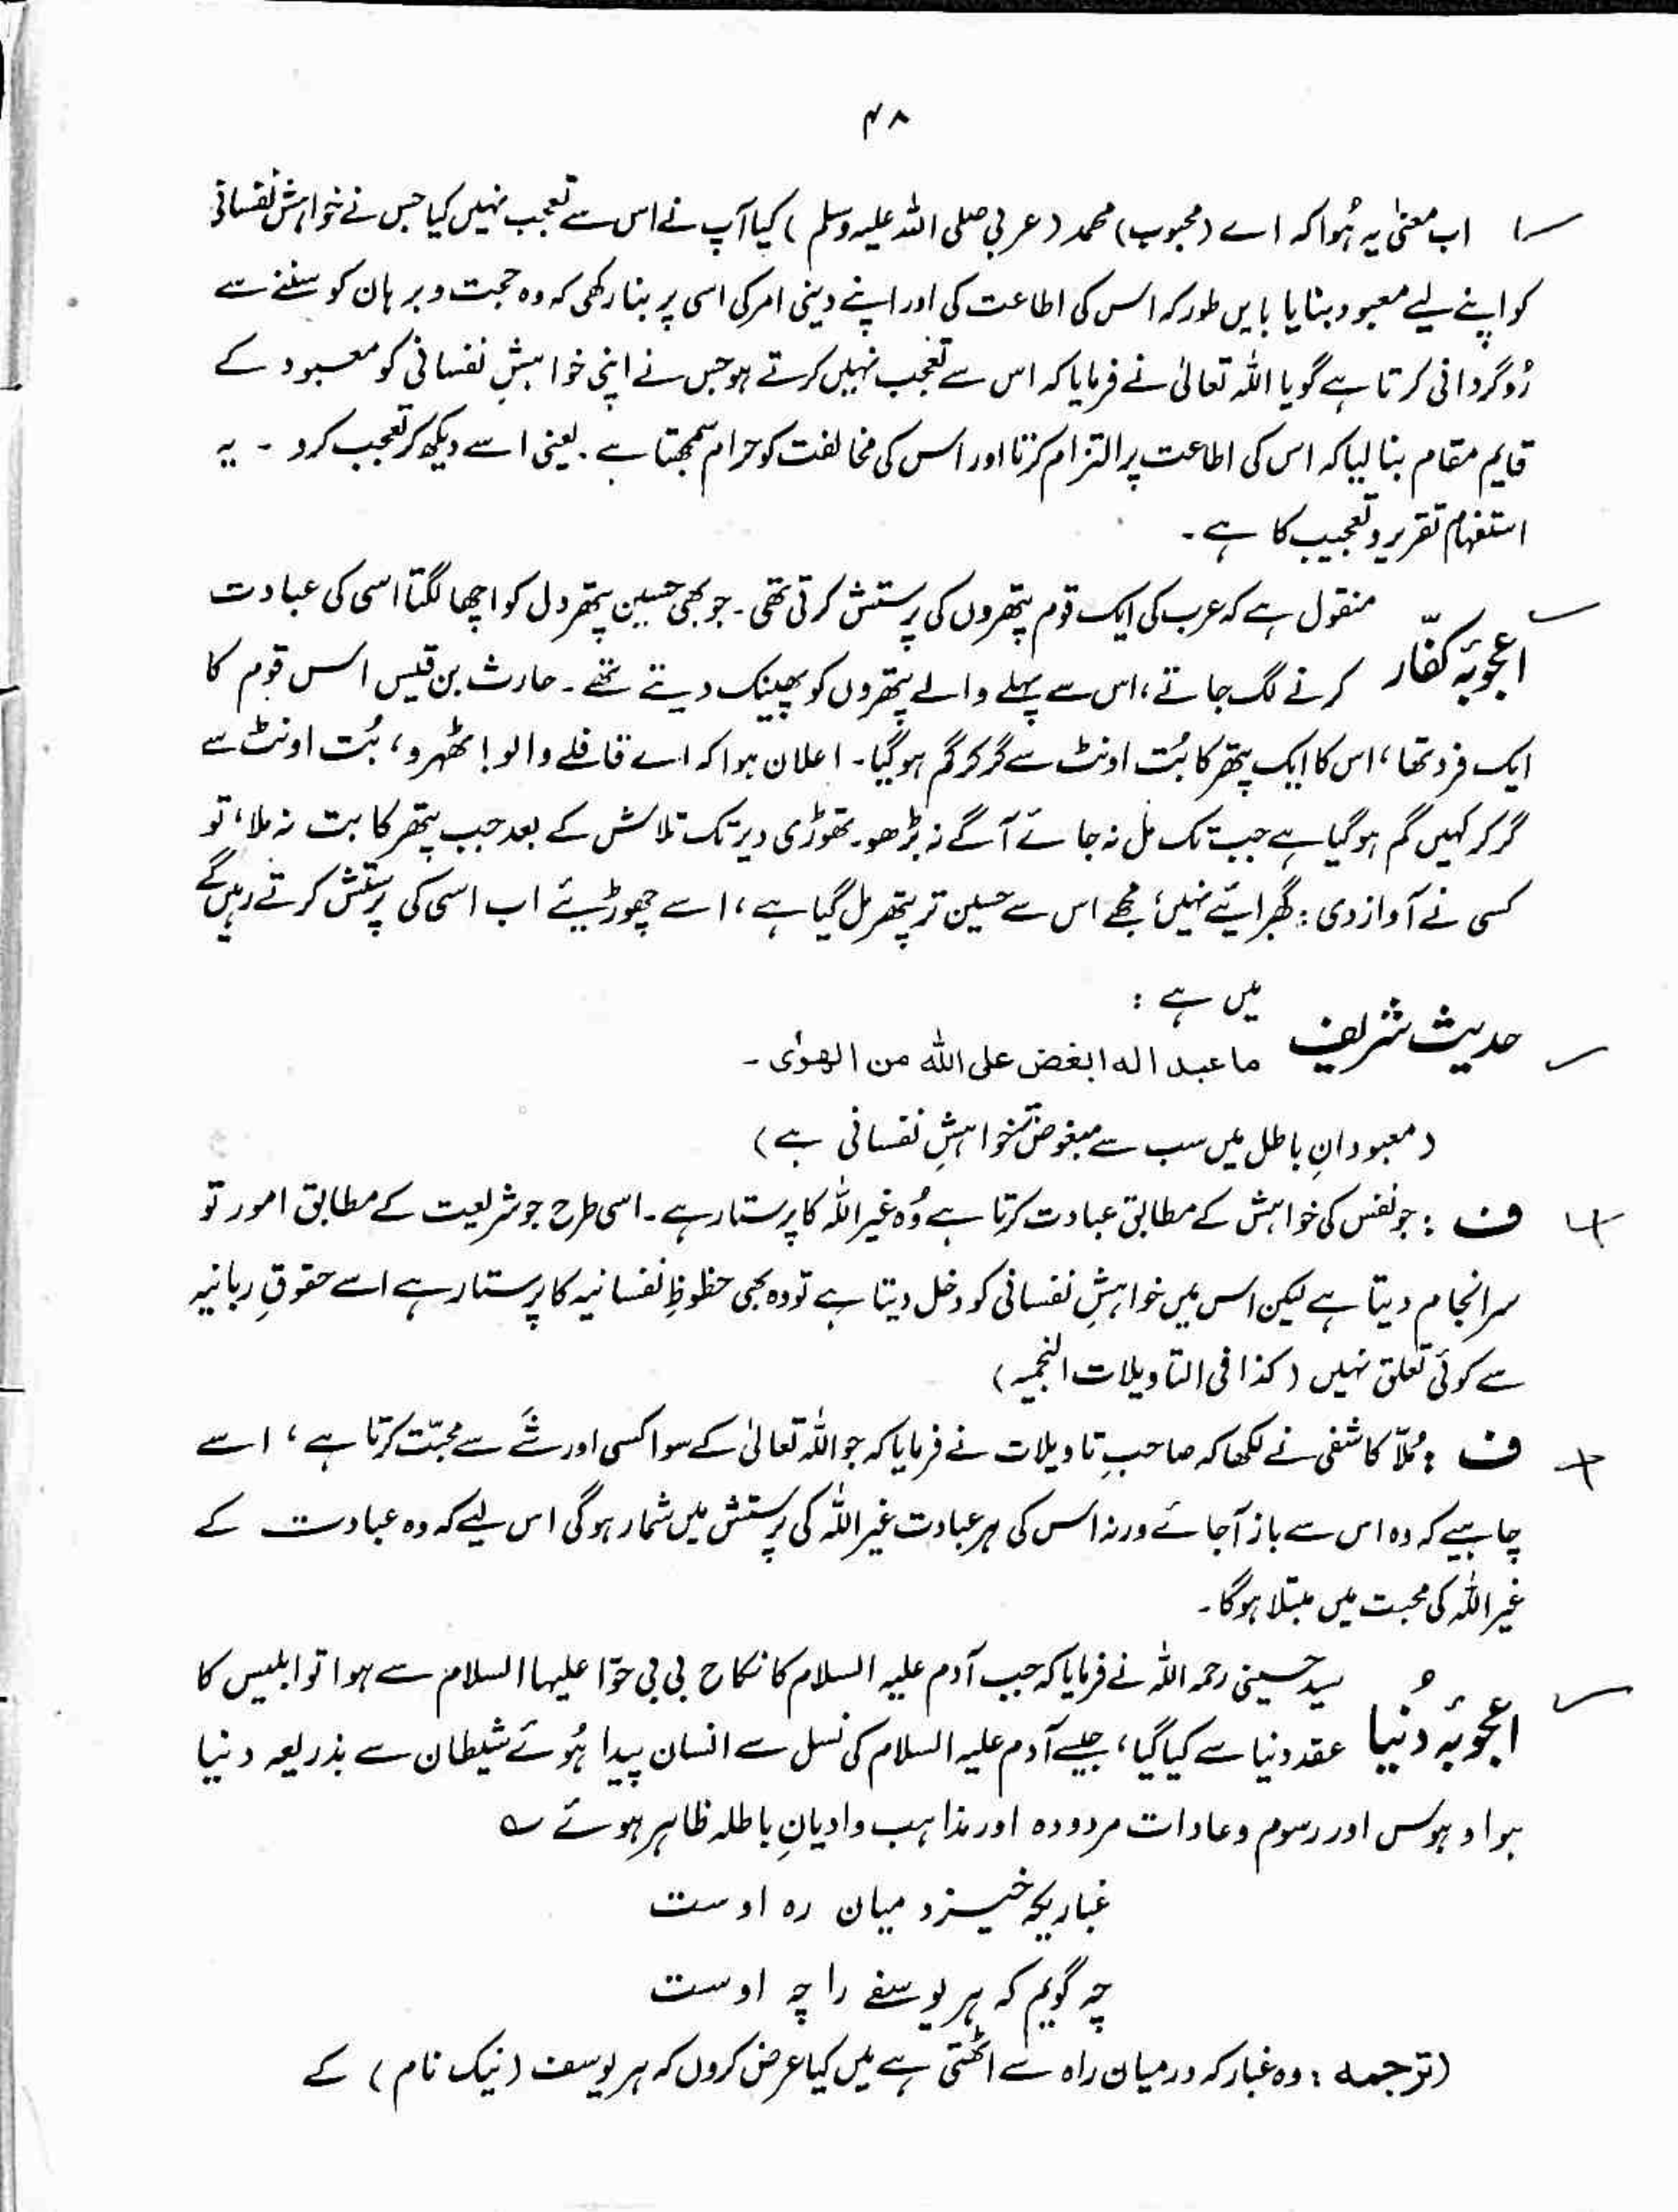 ۴۸
اب معنیٰ یہ ہُوا کہ اے (محبوب) محمد (عربی صلی اللہ علیہ وسلم) کیا آپ نے اس سے تعجب نہیں کیا جس نے خواہشِ نفسانی
کو اپنے لیے معبود بنایا بایں طور کہ اس کی اطاعت کی اور اپنے دینی امر کی اسی پر بنا رکھی کہ وہ حجت و برہان کو سننے سے
رُوگردانی کرتا ہے گویا اللہ تعالیٰ نے فرمایا کہ اس سے تعجب نہیں کرتے ہو جس نے اپنی خواہشِ نفسانی کو معبود کے
قایم مقام بنا لیا کہ اس کی اطاعت پر التزام کرتا اور اس کی مخالفت کو حرام سمجھتا ہے۔ یعنی اسے دیکھ کر تعجب کرو ۔ یہ
استفہام تقریر و تعجیب کا ہے۔
اعجوبۂ کفّار منقول ہے کہ عرب کی ایک قوم پتھروں کی پرستش کرتی تھی۔ جو بھی حسین پتھر دل کو اچھا لگتا اسی کی عبادت
کرنے لگ جاتے، اس سے پہلے والے پتھروں کو پھینک دیتے تھے۔ حارث بن قیس اس قوم کا
ایک فرد تھا، اس کا ایک پتھر کا بُت اونٹ سے گر کر گم ہو گیا۔ اعلان ہوا کہ اے قافلے والو! ٹھہرو، بُت اونٹ سے
گر کر کہیں گم ہو گیا ہے جب تک مل نہ جائے آگے نہ بڑھو۔ تھوڑی دیر تک تلاش کے بعد جب پتھر کا بت نہ ملا، تو
کسی نے آواز دی: گھبرائیے نہیں، مجھے اس سے حسین تر پتھر مل گیا ہے، اسے چھوڑیئے اب اسی کی پرستش کرتے رہیں گے
حدیث شریف میں ہے :
ما عبد اله ابغض علی اللہ من الھوٰی ۔
(معبودانِ باطل میں سب سے مبغوض تر خواہشِ نفسانی ہے)
ف : جو نفس کی خواہش کے مطابق عبادت کرتا ہے وُہ غیر اللہ کا پرستار ہے۔ اسی طرح جو شریعت کے مطابق امور تو
سرانجام دیتا ہے لیکن اس میں خواہشِ نفسانی کو دخل دیتا ہے تو وہ بھی حظوظِ نفسانیہ کا پرستار ہے اسے حقوقِ ربانیہ
سے کوئی تعلق نہیں (کذا فی التاویلات النجمیہ)
ف : مُلّا کاشفی نے لکھا کہ صاحبِ تاویلات نے فرمایا کہ جو اللہ تعالیٰ کے سوا کسی اور شَے سے محبّت کرتا ہے، اسے
چاہیے کہ وہ اس سے باز آجائے ورنہ اس کی ہر عبادت غیر اللہ کی پرستش میں شمار ہوگی اس لیے کہ وہ عبادت کے
غیر اللہ کی محبت میں مبتلا ہوگا۔
اعجوبۂ دُنیا سید حسینی رحمہ اللہ نے فرمایا کہ جب آدم علیہ السلام کا نکاح بی بی حوّا علیہا السلام سے ہوا تو ابلیس کا
عقد دنیا سے کیا گیا، جیسے آدم علیہ السلام کی نسل سے انسان پیدا ہُوئے شیطان سے بذریعہ دنیا
ہوا و ہوس اور رسوم و عادات مردودہ اور مذاہب و ادیانِ باطلہ ظاہر ہوئے ؎
غباریکہ خیزد میان رہ اوست
چہ گویم کہ ہر یوسفے را چہ اوست
(ترجمہ : وہ غبار کہ درمیان راہ سے اٹھتی ہے میں کیا عرض کروں کہ ہر یوسف (نیک نام) کے